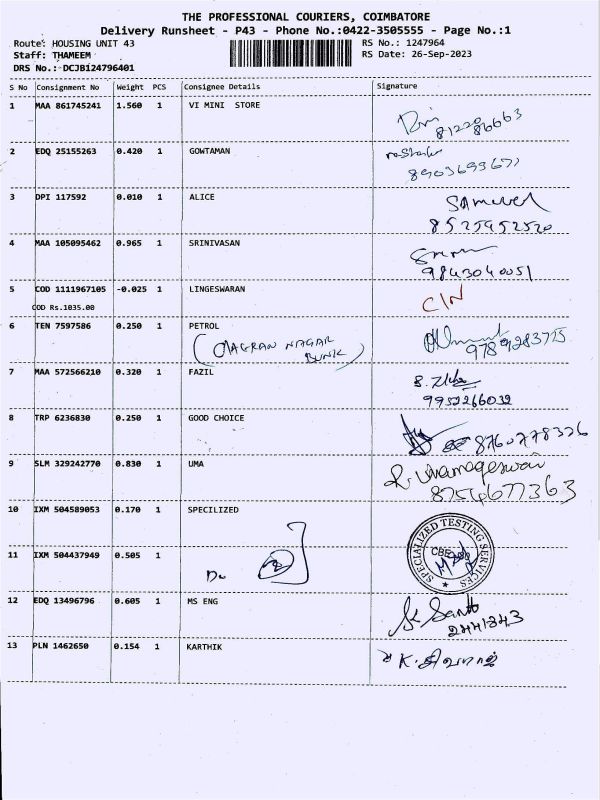 THE PROFESSIONAL COURIERS, COIMBATORE
Delivery Runsheet - P43 - Phone No.:0422-3505555 - Page No.:1
Route: HOUSING UNIT 43 RS No.: 1247964
Staff: THAMEEM RS Date: 26-Sep-2023
DRS No.:-DCJB124796401
S No Consignment No Weight PCS Consignee Details Signature
1 MAA 861745241 1.560 1 VI MINI STORE
81220 86663
2 EDQ 25155263 0.420 1 GOWTAMAN
8903693671
3 DPI 117592 0.010 1 ALICE Samuvel
8525952520
4 MAA 105095462 0.965 1 SRINIVASAN
9843040051
5 COD 1111967105 -0.025 1 LINGESWARAN C/N
COD Rs.1035.00
6 TEN 7597586 0.250 1 PETROL
NAGAR BUNK 9789283715
7 MAA 572566210 0.320 1 FAZIL
9952266032
8 TRP 6236830 0.250 1 GOOD CHOICE 8760778326
9 SLM 329242770 0.830 1 UMA R. Umamageswari
8754677363
10 IXM 504589053 0.170 1 SPECILIZED
SPECIALIZED TESTING SERVICES
CBE
11 IXM 504437949 0.505 1
12 EDQ 13496796 0.605 1 MS ENG
2441343
13 PLN 1462650 0.154 1 KARTHIK